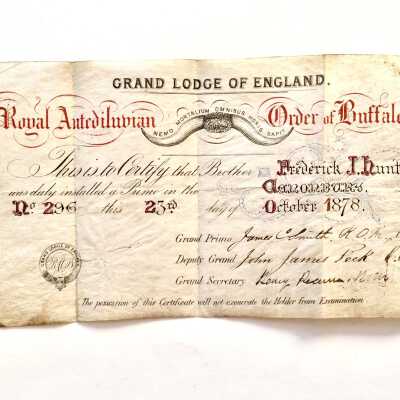 GRAND LODGE OF ENGLAND.
Royal Antediluvian Order of Buffalo
NEMO MORTALIUM OMNIBUS HORIS SAPIT
This is to Certify that Brother Frederick J. Hunt
was duly installed a Primo in the
No 296 this 23rd day of October 1878.
Grand Primo James C Smith, R.O.H.
GRAND LODGE OF ENGLAND
Deputy Grand John James
Grand Secretary Henry
The possession of this Certificate will not exonerate the Holder from Examination